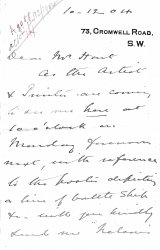 10-12-04
73, CROMWELL ROAD,
S.W.
Dear Mr Hart
As the Artist
& Printer are coming
to see me here at
10 o'clock on
Monday forenoon
next, with reference
to the poster depicting
a line of battle ship
&c. will you kindly
send me "Nelson's